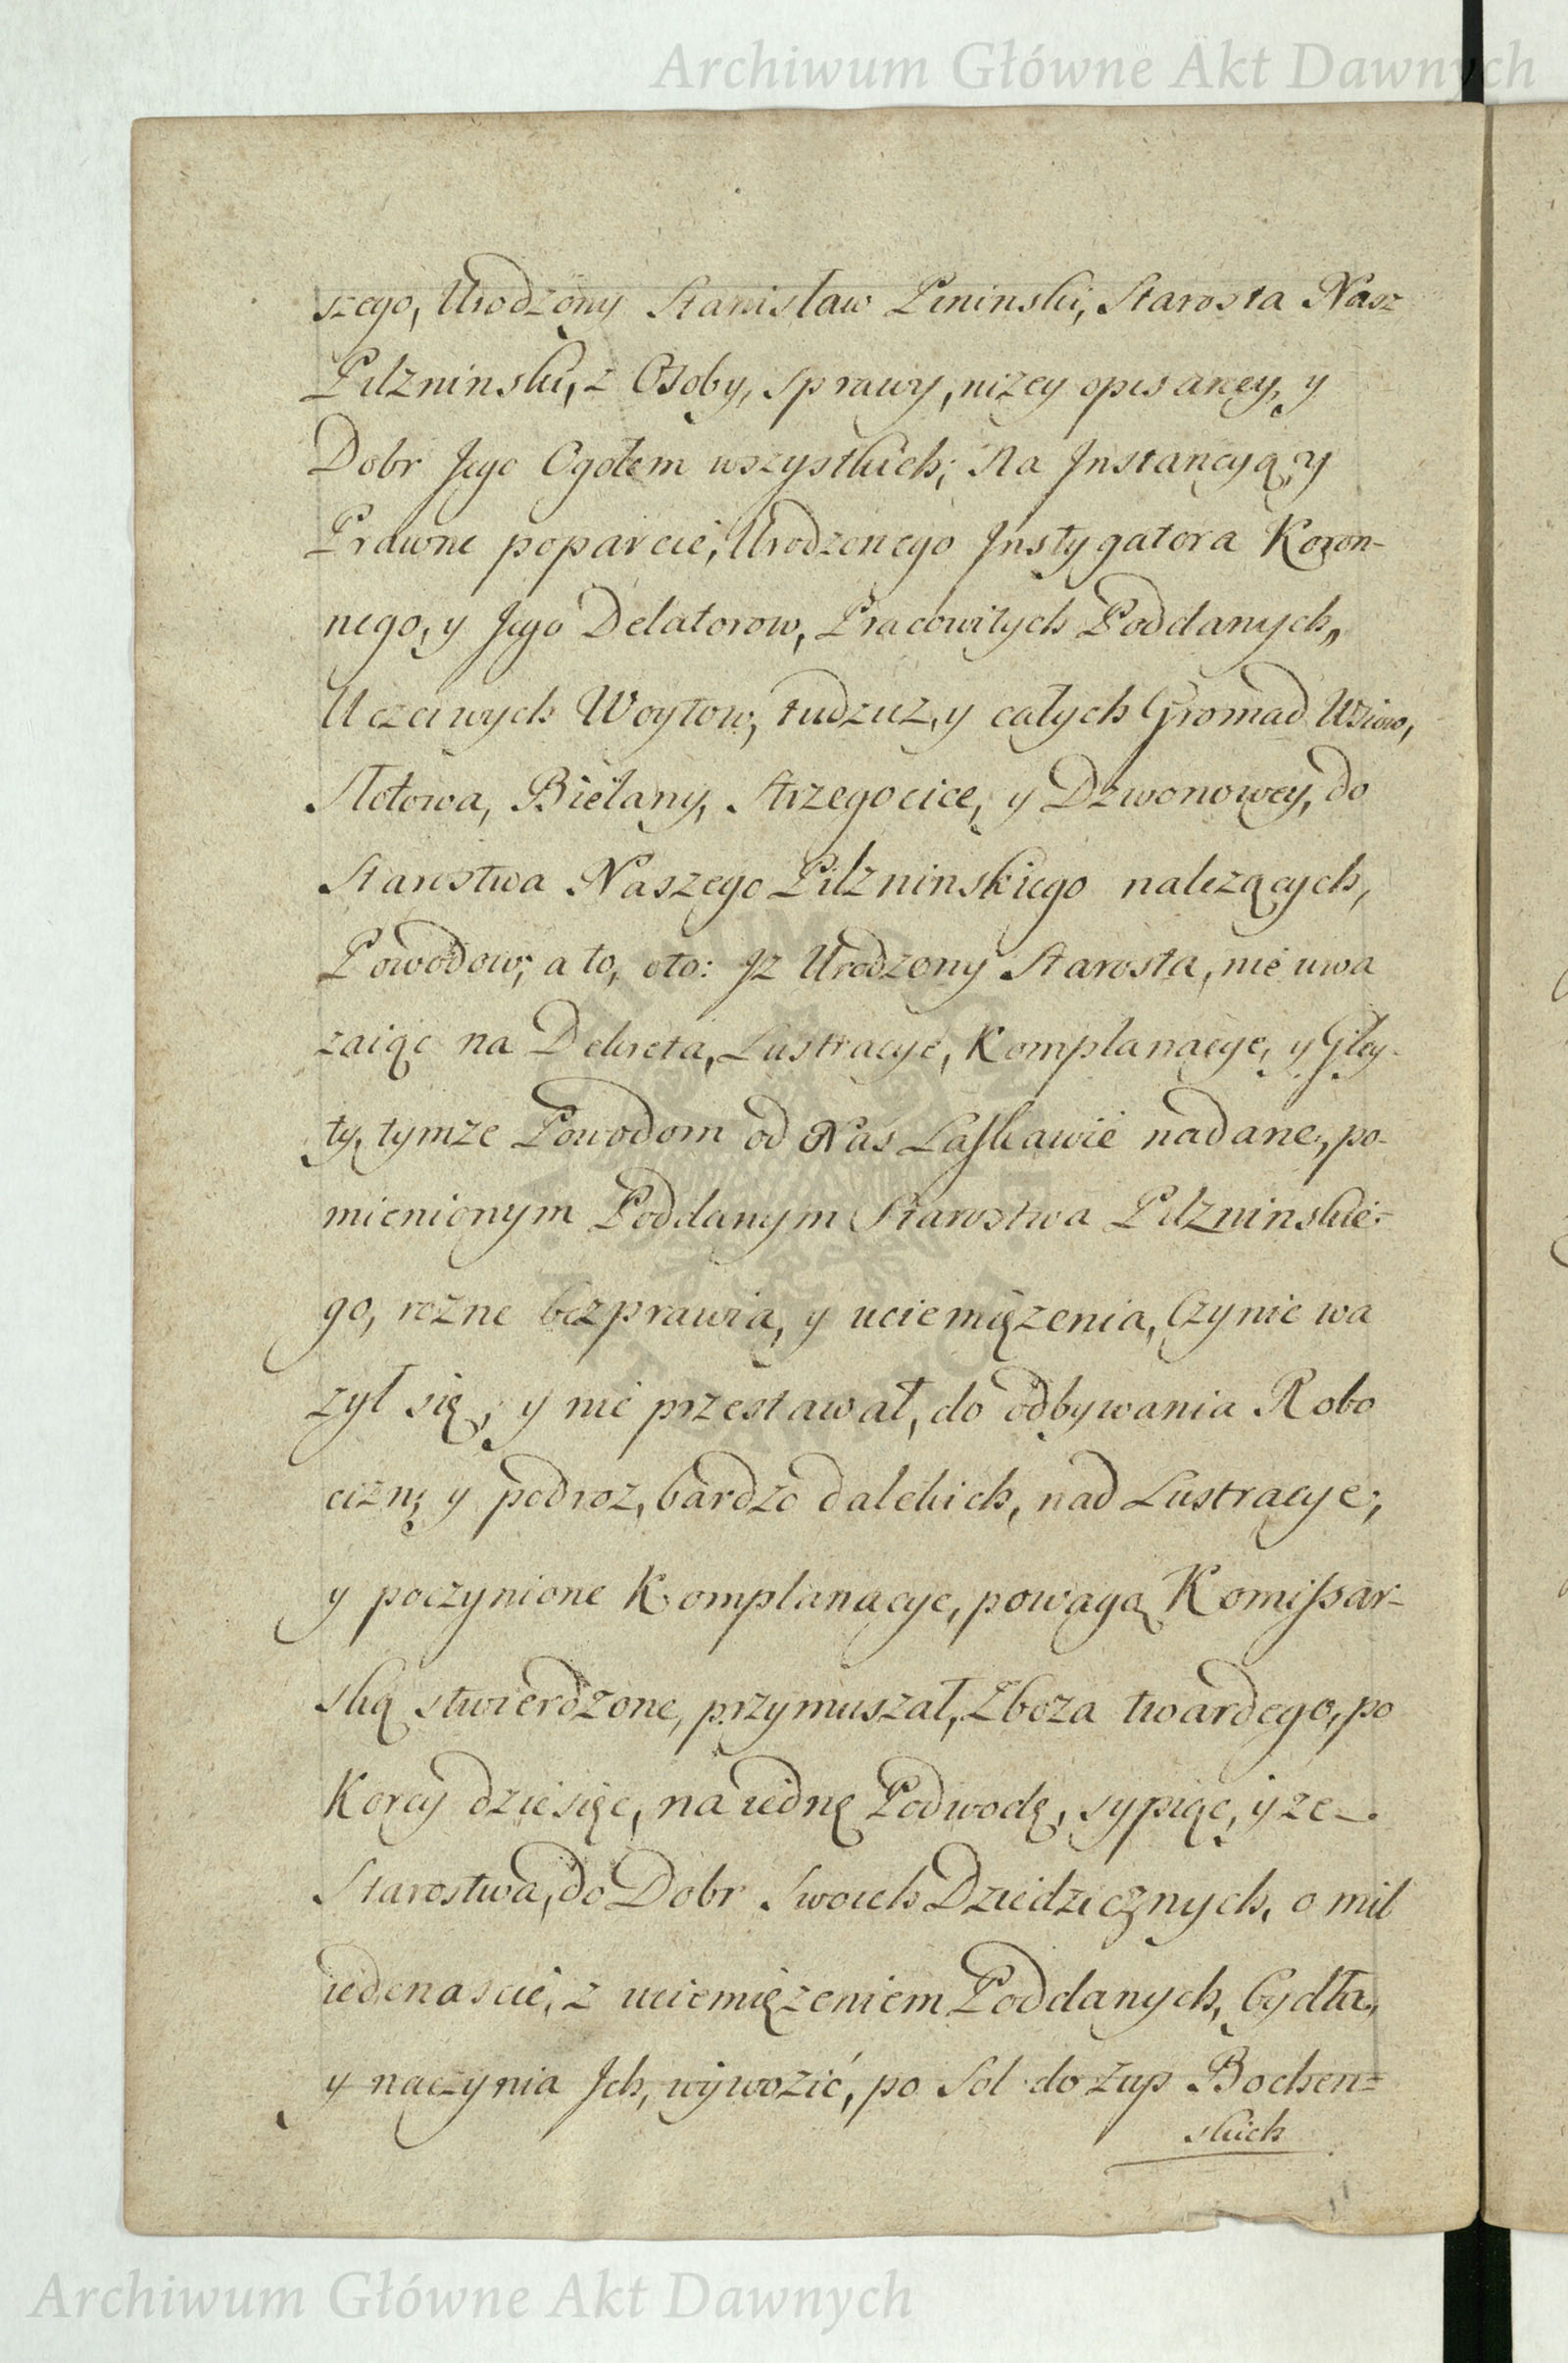 Archiwum Główne Akt Dawnych
szego, Urodzony Stanisław Lininski, Starosta Nasz
Pilzninski, z Osoby, sprawy, nizey opisaney, y
Dobr Jego Ogołem wszystkich; Na Jnstancyą, y
Prawne poparcie, Urodzonego Jnstygatora Koron-
nego, y Jego Delatorow, Pracowitych Poddanych,,
Uczciwych Woytow, tudziuz, y całych Gromad Wsiow,
Słotowa, Bielany, Strzegocice, y Dzwonowey, do
Starostwa Naszego Pilzninskiego nalezących,
Powodow; a to, oto: Jz Urodzony Starosta, nie uwa
zaiąc na Dekreta, Lustracye, Komplanacye, y Gley-
ty, tymze Powodom od Nas Łaskawie nadane, po-
mienionym Poddanym Starostwa Pilzninskie-
go, rozne bezprawia, y uciemięzenia, Czynic wa
zył się, y nie przestawał, do odbywania Robo
cizn, y podroz, bardzo dalekich, nad Lustracye,
y poczynione Komplanacye, powagą Komissar-
ską stwierdzone, przymuszał, Zboza twardego, po
Korcy dziesięc, na iednę Podwodę, sypiąc, y ze-.
Starostwa, do Dobr Swoich Dziedzicznych, o mil
iedenascie, z uciemięzeniem Poddanych, bydła,
y naczynia Jch, wywozić, po Sol do zup Bochen=
skich
Archiwum Główne Akt Dawnych